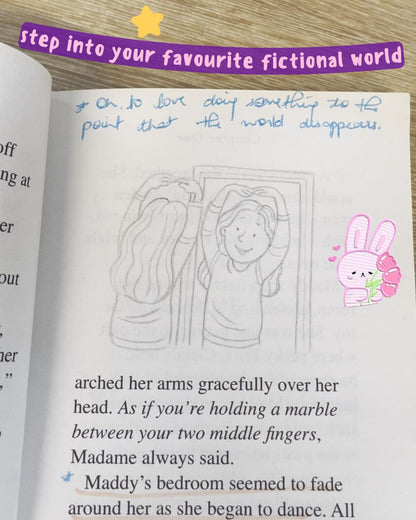 step into your favourite fictional world
* Oh, to love doing something to the
point that the world disappears.
off
ng at
er
out
her
,"
arched her arms gracefully over her
head. As if you're holding a marble
between your two middle fingers,
Madame always said.
* Maddy's bedroom seemed to fade
around her as she began to dance. All